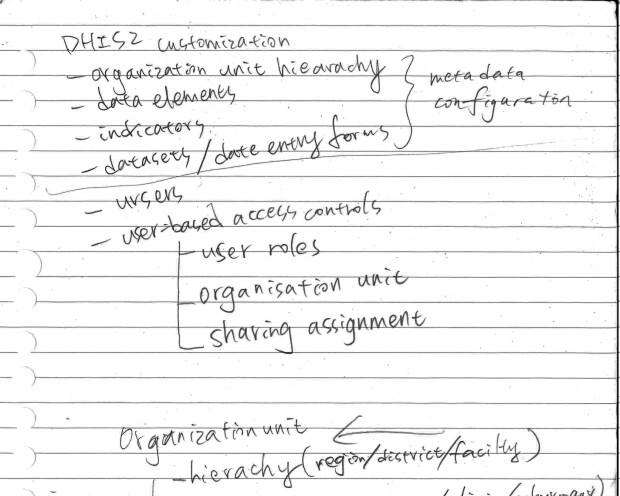 DHIS2 customization
- organization unit hiearachy
- data elements
- indicators
- datasets / date entry forms
metadata
configuraton
- ursers
- user-based access controls
- user roles
- organisation unit
- sharing assignment
Organization unit
- hierachy (region/district/facilty)